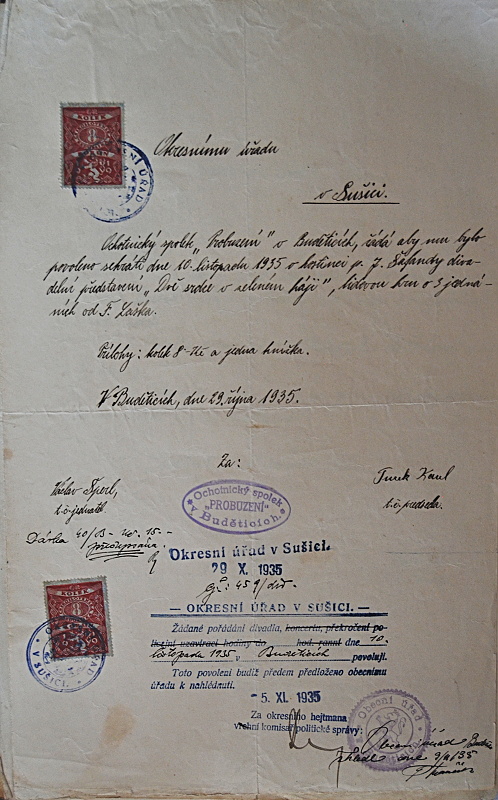 KOLEK
8
Okresnímu úřadu
v Sušici.
Ochotnický spolek „Probuzení" v Budětících, žádá aby mu bylo
povoleno sehráti dne 10. listopadu 1935 v hostinci p. J. Šafandy diva-
delní představení „Dvě srdce v zeleném háji", lidovou hru o 3 jedná-
ních od F. Laška.
Přílohy: kolek 8-Kč a jedna knížka.
V Budětících, dne 29. října 1935.
Za:
Václav Šperl,
t.č. jednatel
Turek Karel
t.č. předseda.
Ochotnický spolek
„PROBUZENÍ"
v Budětících.
Dávka
Okresní úřad v Sušici
29 X. 1935
Čj.: 459/div
8
— OKRESNÍ ÚŘAD V SUŠICI. —
Žádané pořádání divadla, koncertu, překročení po-
licejní uzavírací hodiny do hod. ranní dne 10.
listopadu 1935 v Budětících povoluji.
Toto povolení budiž předem předloženo obecnímu
úřadu k nahlédnutí.
5. XI. 1935
Za okresního hejtmana
vrchní komisař politické správy:
Obecní úřad
Obecní úřad
dne 9/11 35